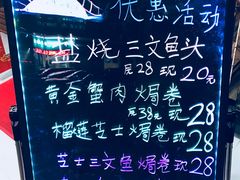 优惠活动
盐烧三文鱼头
原28 现20元
黄金蟹肉焗卷
原38元 现28
榴莲芝士焗卷 28
芝士三文鱼焗卷现28